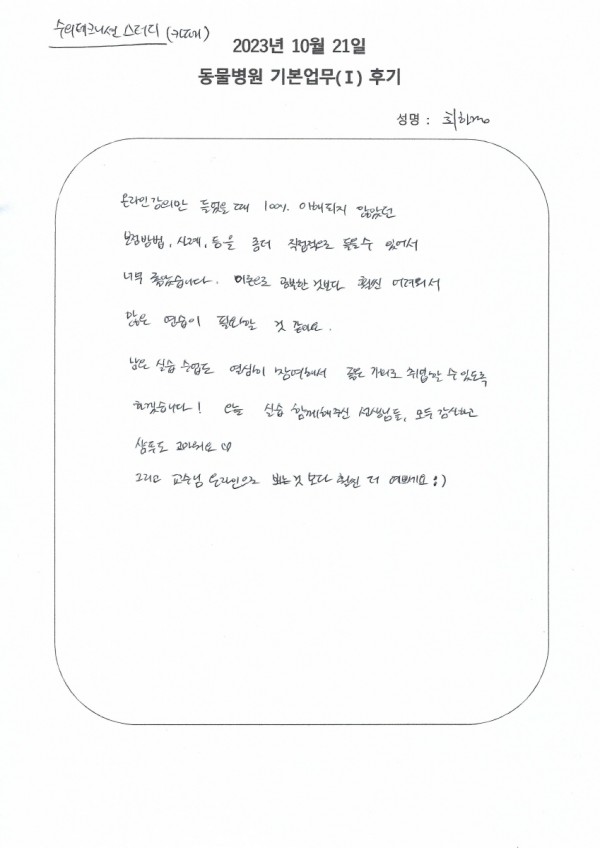 수의테크니션 스터디 (카페)
2023년 10월 21일
동물병원 기본업무(I) 후기
성명 : 최하
온라인강의만 들었을 때 100% 이해되지 않았던
보정방법, 시계, 등을 좀더 직접적으로 들을수 있어서
너무 좋았습니다. 이론으로 공부한 것보다 훨씬 어려워서
많은 연습이 필요할 것 같아요.
남은 실습 수업도 열심히 참여해서 좋은 가터로 취업할 수 있도록
하겠습니다! 오늘 실습 함께해주신 선생님들, 모두 감사하고
상무도 고마워요 ♡
그리고 교수님 온라인으로 보는것 보다 훨씬 더 예쁘세요 :)